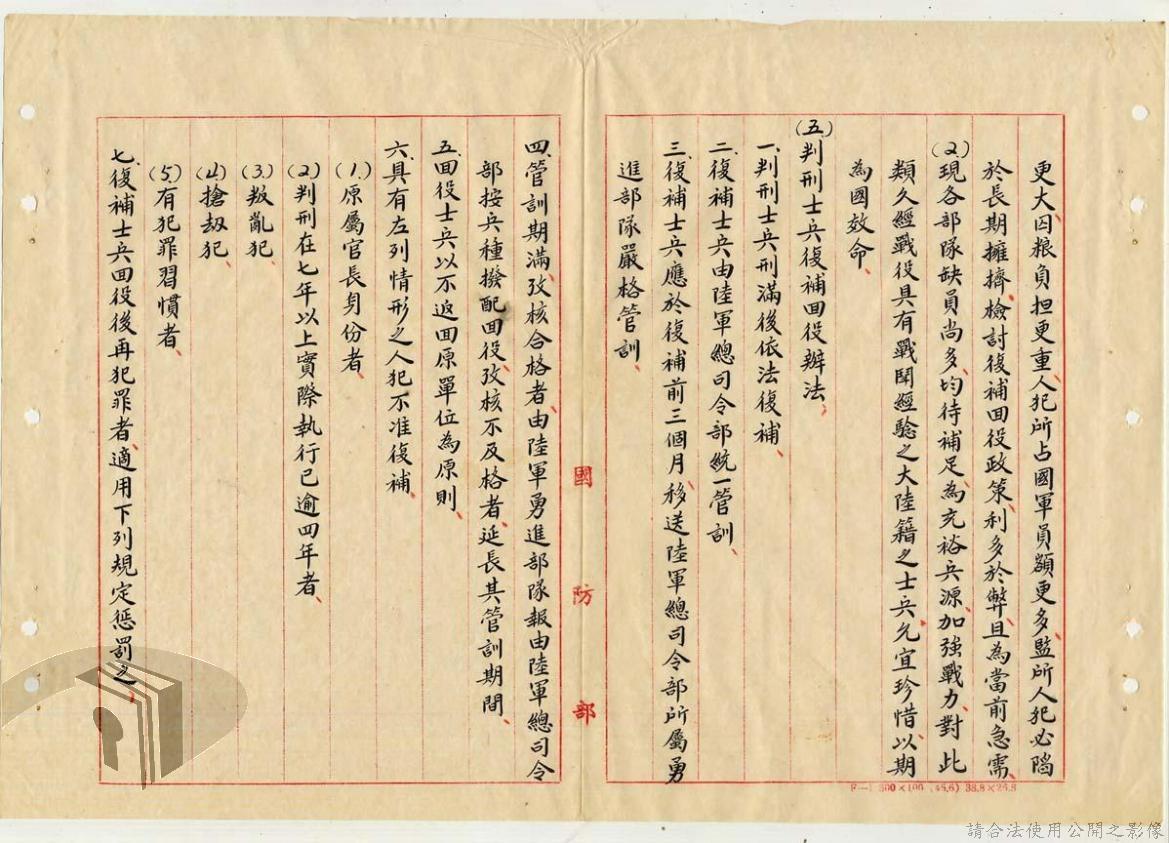 更大、囚粮負担更重、人犯所占國軍員額更多、監所人犯必陷
於長期擁擠、檢討復補回役政策、利多於弊、且為當前急需、
(2)現各部隊缺員尚多、均待補足、為充裕兵源、加強戰力、對此
類久經戰役具有戰鬪經驗之大陸籍之士兵、允宜珍惜、以期
為國效命、
(五)判刑士兵復補回役辦法、
一、判刑士兵刑滿後依法復補、
二、復補士兵由陸軍總司令部統一管訓、
三、復補士兵應於復補前三個月、移送陸軍總司令部所屬勇
進部隊嚴格管訓、
四、管訓期滿、攷核合格者、由陸軍勇進部隊報由陸軍總司令
部按兵種撥配回役、攷核不及格者、延長其管訓期間、
五、回役士兵以不返回原單位為原則、
六、具有左列情形之人犯不准復補、
(1.)原屬官長身份者、
(2)判刑在七年以上實際執行已逾四年者、
(3.)叛亂犯、
(4)搶刼犯、
(5.)有犯罪習慣者、
七、復補士兵回役後再犯罪者、適用下列規定懲罰之、
國防部
F—1 300×100 (45.6) 38.8×26.8
請合法使用公開之影像